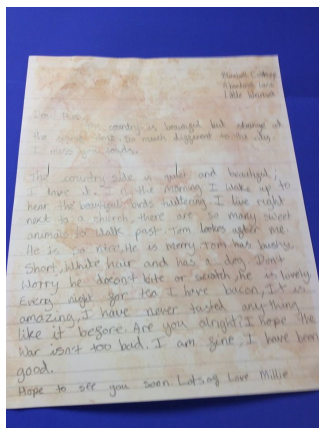 Cottage
Lane
Little
country is beautiful but strange at
the so much different to the city.
I miss
The country side is and beautiful,
I love it. In the morning I wake up to
hear the beautiful birds I live right
next to a church, there are so many sweet
animals to walk past. Tom looks after me.
He is so nice, He is merry. Tom has bushy,
Short, White hair and has a dog. Don't
Worry he doesn't bite or scratch, he is lovely.
Every night for tea I have bacon, It is
amazing, I have never tasted anything
like it before. Are you alright? I hope the
War isn't too bad. I am fine, I have been
good.
Hope to see you soon. Lots of Love Millie